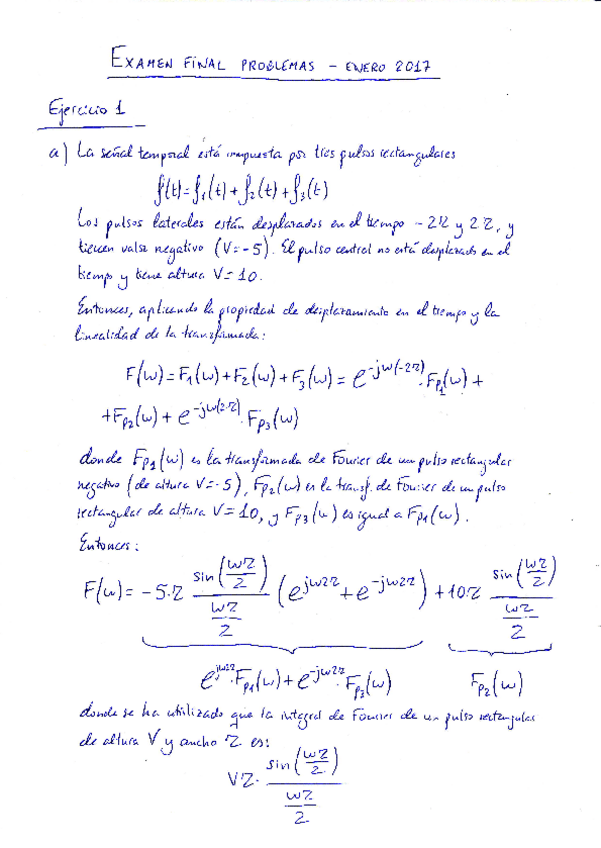 EXAMEN FINAL PROBLEMAS - ENERO 2017
Ejercicio 1
a) La señal temporal está compuesta por tres pulsos rectangulares
f(t)=f₁(t)+f₂(t)+f₃(t)
Los pulsos laterales están desplazados en el tiempo -2τ y 2τ, y
tienen valor negativo (V=-5). El pulso central no está desplazado en el
tiempo y tiene altura V=10.
Entonces, aplicando la propiedad de desplazamiento en el tiempo y la
linealidad de la transformada:
F(ω)=F₁(ω)+F₂(ω)+F₃(ω)= e^{-jω(-2τ)}·F_{P1}(ω)+
+F_{P2}(ω)+e^{-jω(2τ)}·F_{P3}(ω)
donde F_{P1}(ω) es la transformada de Fourier de un pulso rectangular
negativo (de altura V=-5), F_{P2}(ω) es la transf. de Fourier de un pulso
rectangular de altura V=10, y F_{P3}(ω) es igual a F_{P1}(ω).
Entonces:
F(ω)= -5·τ sin(ωτ/2)/(ωτ/2) (e^{jω2τ}+e^{-jω2τ}) +10τ sin(ωτ/2)/(ωτ/2)
e^{jω2τ}·F_{P1}(ω)+e^{-jω2τ}·F_{P3}(ω) F_{P2}(ω)
donde se ha utilizado que la integral de Fourier de un pulso rectangular
de altura V y ancho τ es:
Vτ· sin(ωτ/2)/(ωτ/2)